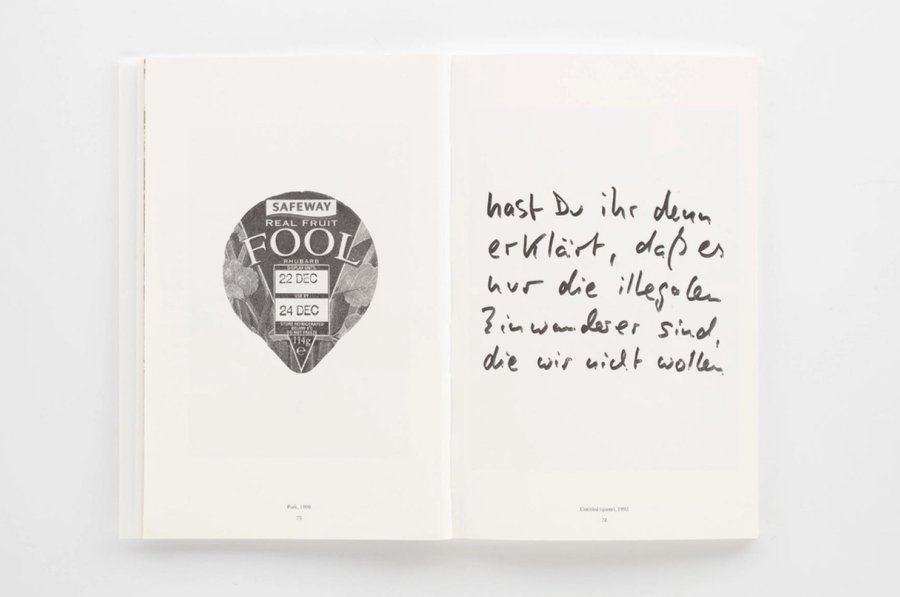 SAFEWAY
REAL FRUIT
FOOL
RHUBARB
DISPLAY UNTIL
22 DEC
USE BY
24 DEC
STORE REFRIGERATED
BELOW 5°C
DO NOT FREEZE
114g
e
hast Du ihr denn
erklärt, daß es
nur die illegalen
Einwanderer sind,
die wir nicht wollen
Untitled (quote), 1992
74